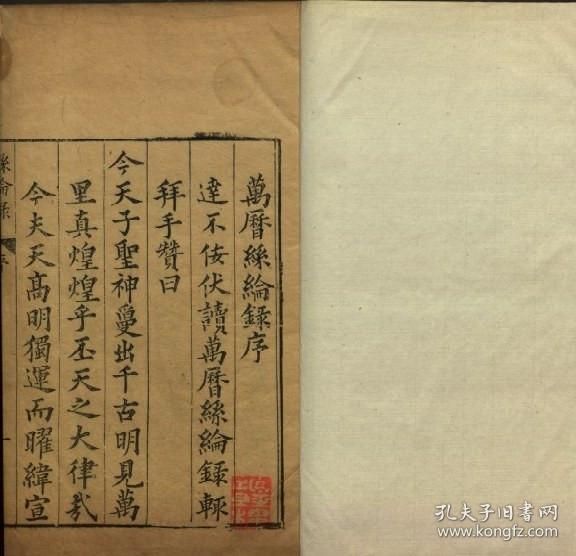 萬曆絲綸錄序
達不佞伏讀萬曆絲綸錄輒
拜手贊曰
今天子聖神敻出千古明見萬
里真煌煌乎丕天之大律哉
今夫天高明獨運而曜緯宣
絲綸錄
序
一
孔夫子旧书网
kongfz.com